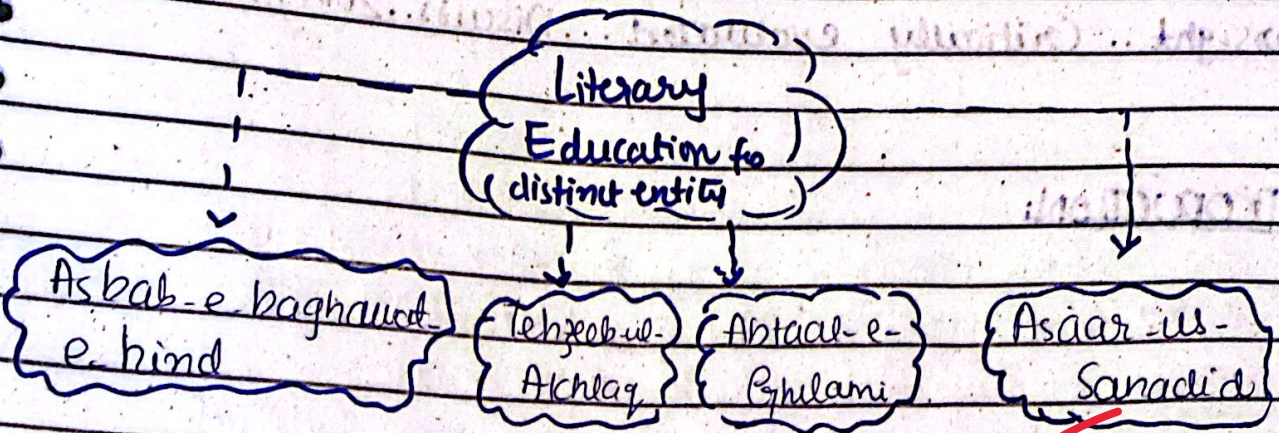 Literary
Education for
distinct entity
Asbab-e-baghawat-
e-hind
Tehzeeb-ul-
Akhlaq
Abtaal-e-
Ghulami
Asaar-us-
Sanadid